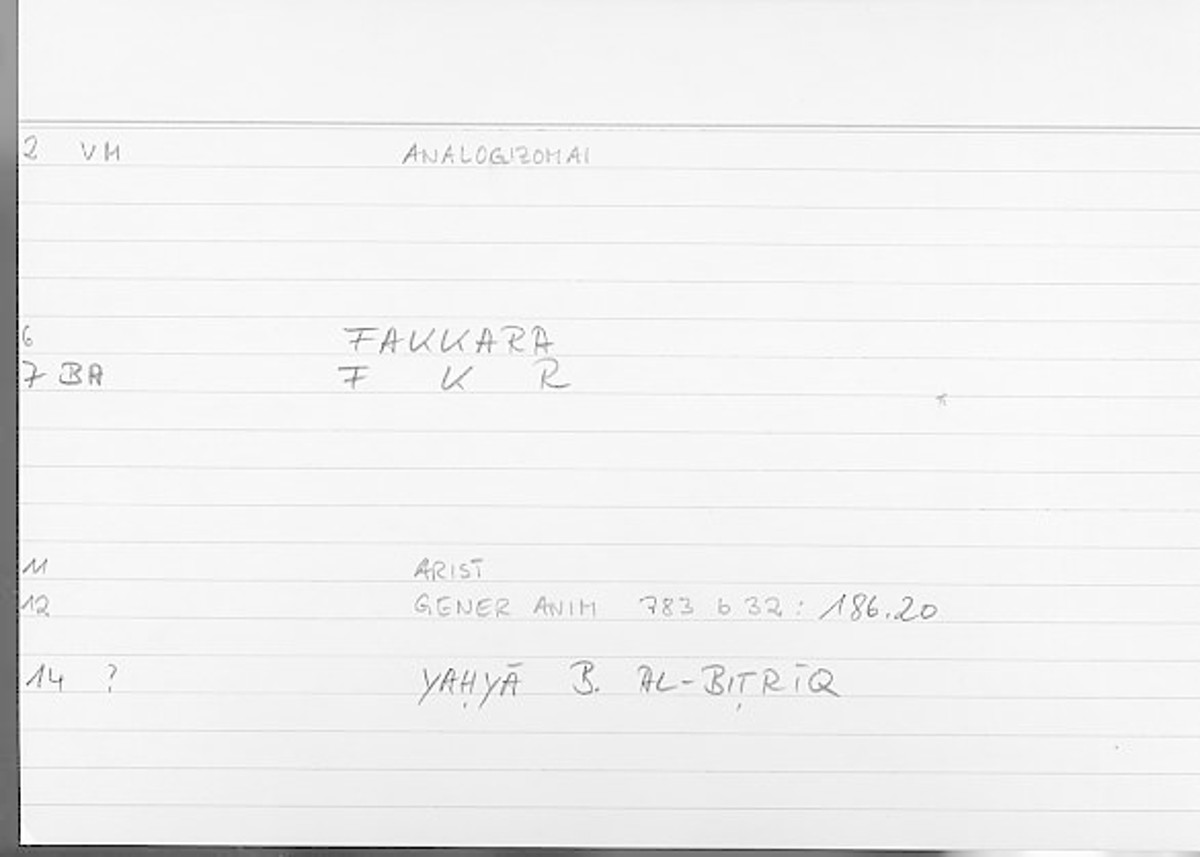 2 VM ANALOGIZOMAI
6 FAKKARA
7 BA F K R
*
11 ARIST
12 GENER ANIM 783 b 32: 186.20
14 ? YAḤYĀ B. AL-BIṬRĪQ